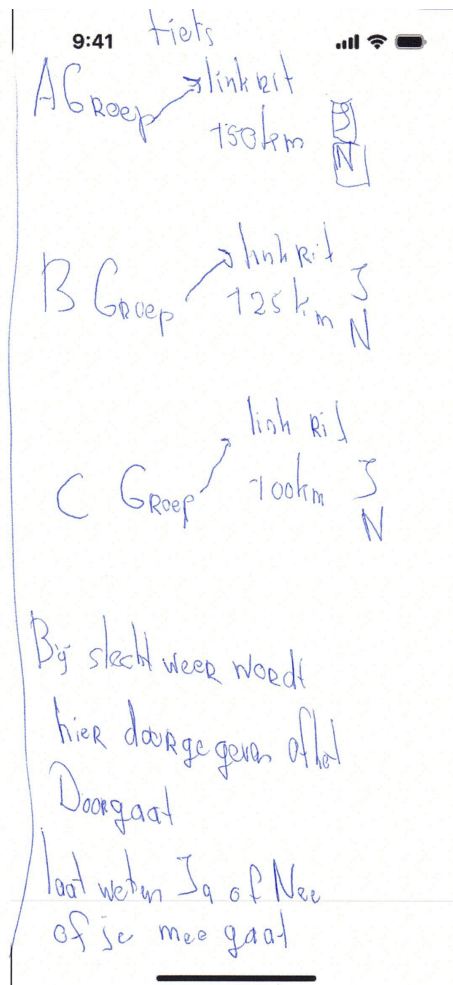 9:41
fiets
A Groep → link rit
150km
J
N
B Groep → link Rit
125 km
J
N
C Groep → link Rit
100km
J
N
Bij slecht weer wordt
hier doorgegeven of het
Doorgaat
laat weten Ja of Nee
of je mee gaat